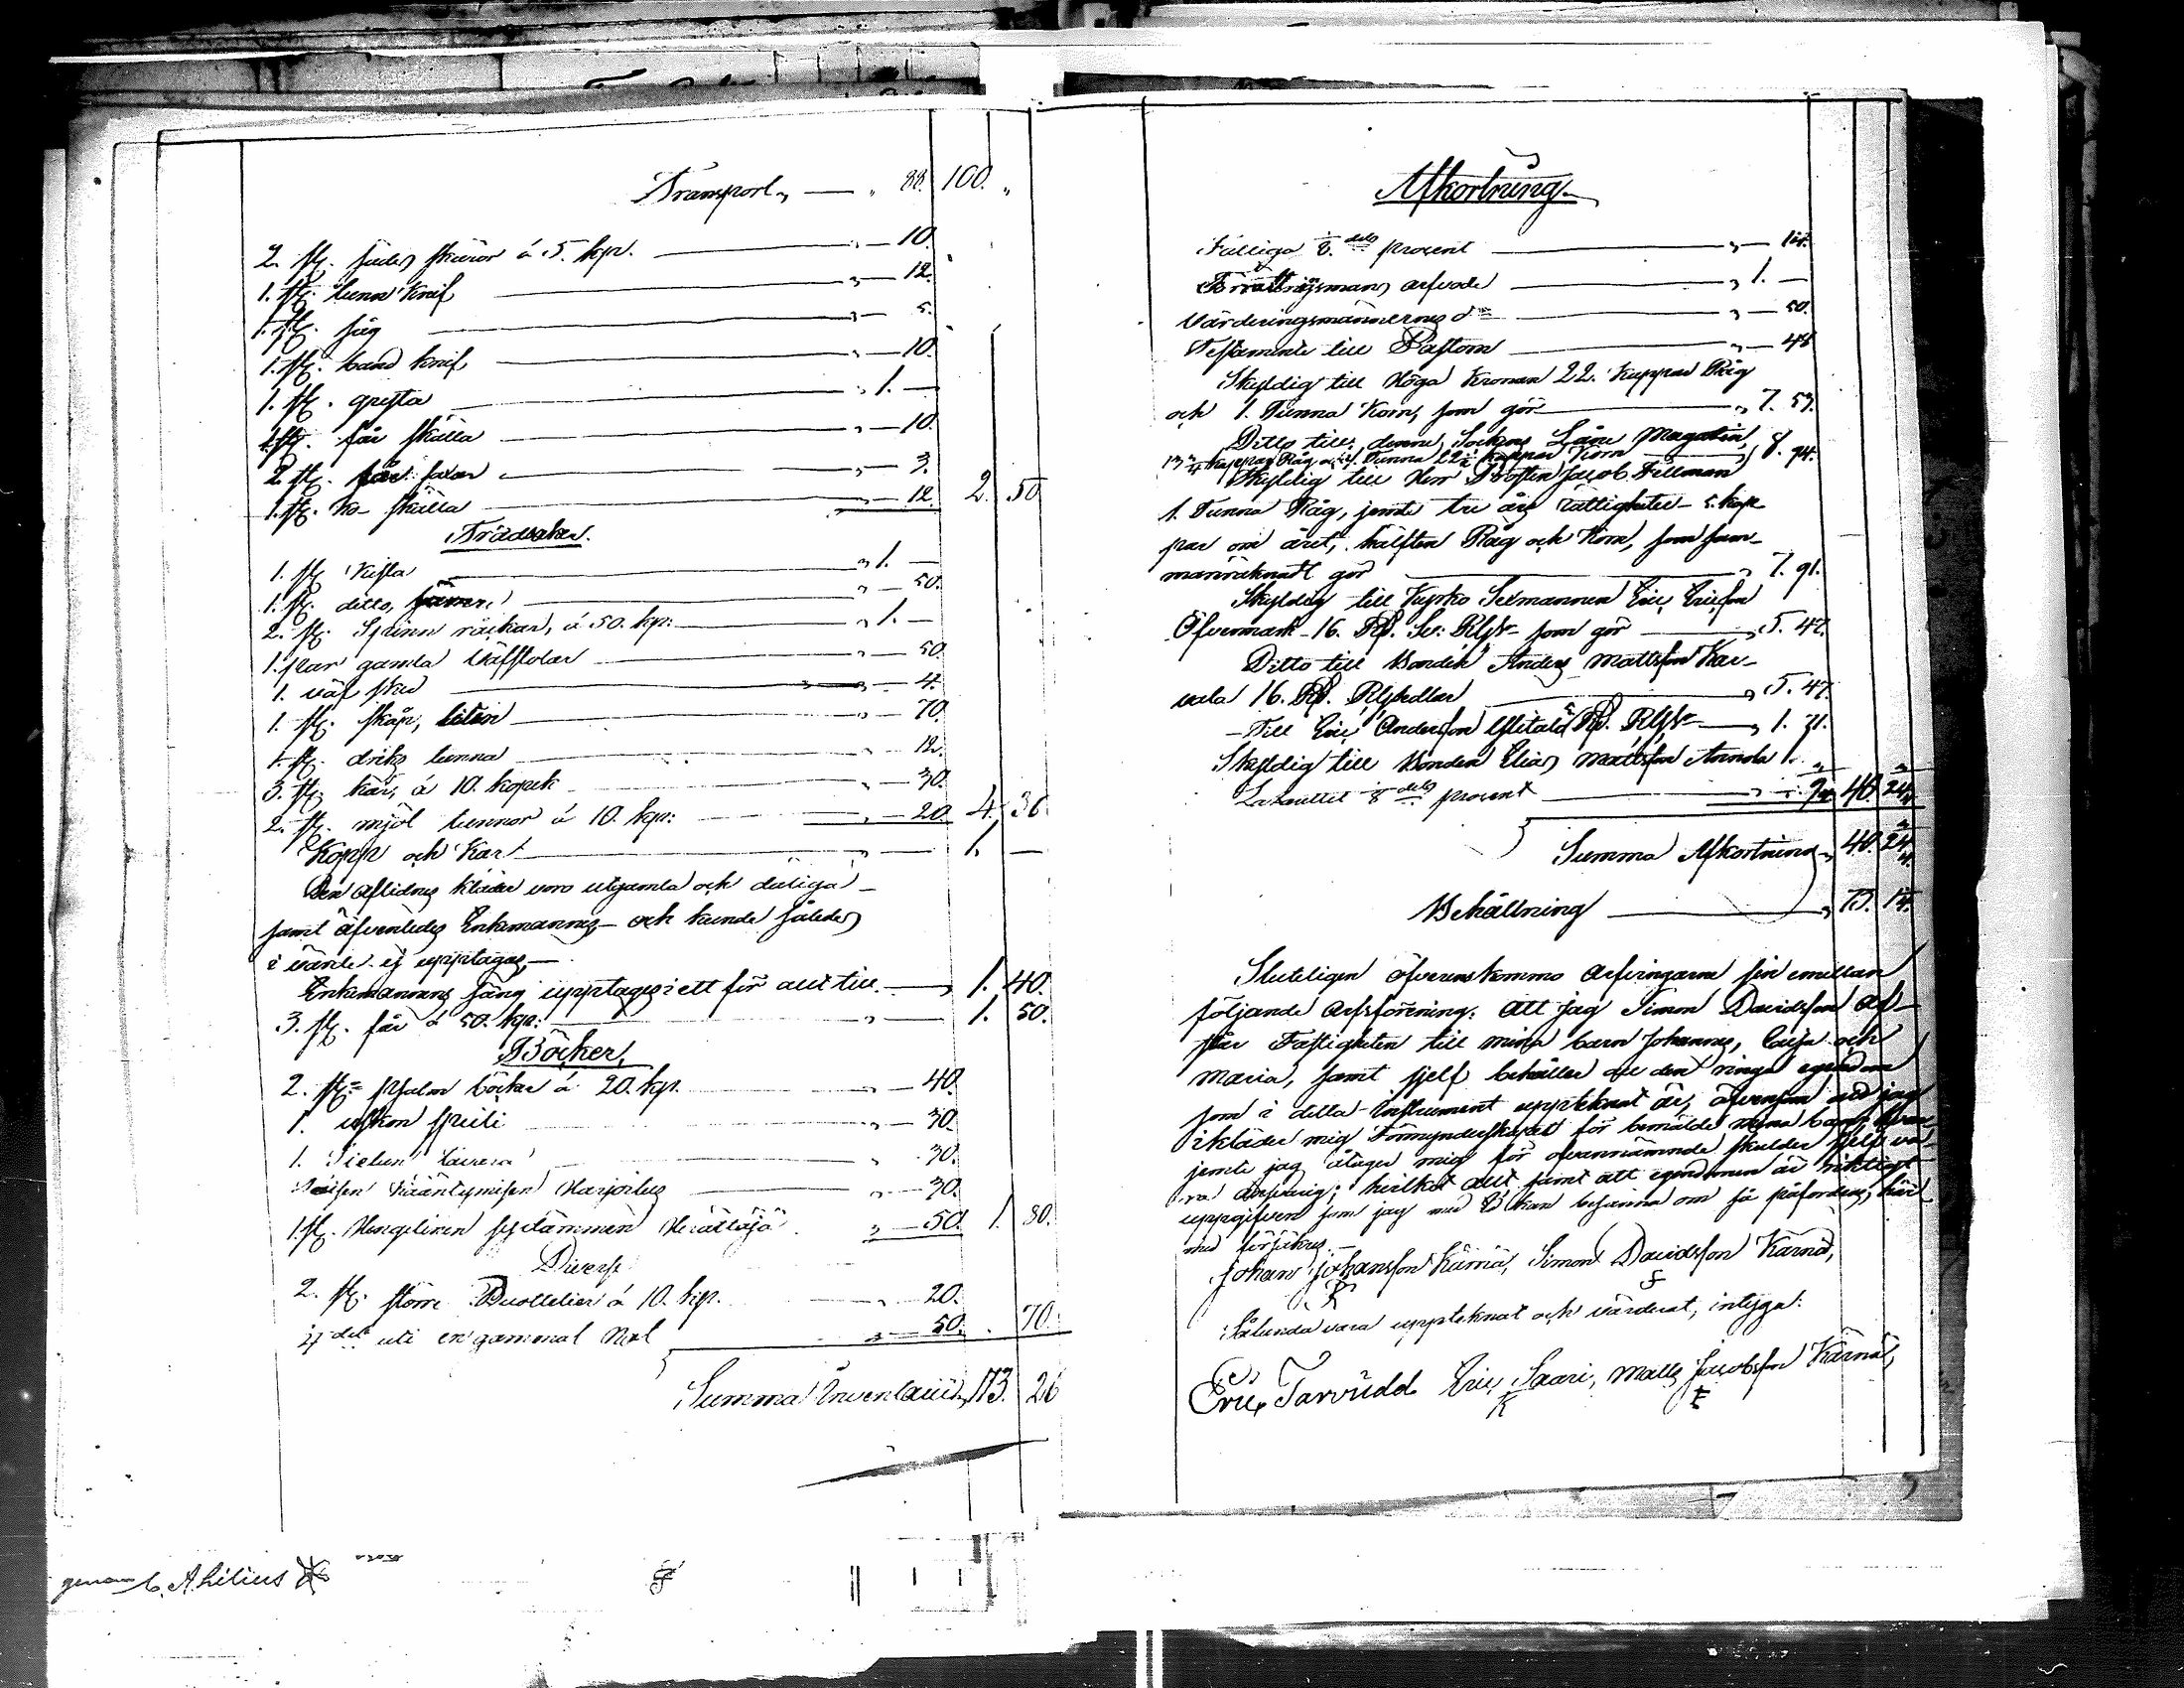 Transport " — " 88. 100. "
2. st. skäror á 5. kop. — " — 10.
1. st. tunn knif — " — 12.
1. st. såg — " — 5.
1. st. band knif — " — 10.
1. st. grysta — " 1. —
1. st. får skälla — " — 10.
2. st. får saxar — " — 3.
1. st. Ko- skälla — " — 12. 2. 50
Trädsaker.
1. st. Kista — " 1. —
1. st. ditto, — " — 50.
2. st. Spinn råckar, á 50. kop: — " 1. —
1. par gamla Väfstolar — " — 50.
1. väf sked — " — 4.
1. st. skåp, liten — " — 70.
1. st. dricks tunna — " — 12.
3. st. kar, á 10. kopek — " — 30.
2. st. mjöl tunnor á 10. kop: — " — 20. 4. 36.
Kopp och Kar — " — 1. —
Den aflidnes kläder voro utgamla och dåliga —
samt äfvenledes Enkemannens — och kunde således
i värde ej upptagas, —
Enkemannens säng upptages i ett för allt till — " 1. 40.
3. st. får á 50. kop: — " — 1. 50.
Böcker,
2. st. psalm böcker á 20. kop. — " — 40.
1. uskon — " — 30.
1. Sielun — " 30.
Kääntymisen Harjoitus — " — 30.
1. st. Hengelinen Herättäjä — " — 50. 1. 80.
Diverse
2. st. större Buttelier á 10. kop. — " — 20.
1/4 del uti en gammal Not — " — 50. . 70.
Summa Inventarii " 113. 26
genom C. A. Lilius
Afkortning.
Fattiga 1/8 dels procent — " — 14.
Förrättningsmans arfvode — " 1. —
Värderingsmännernes do — " — 50.
Testamente till Pastorn — " — 48
Skyldig till Höga Kronan 22. Kappar Råg
och 1. Tunna Korn, som gör — " 7. 59.
Ditto till denne Sockens Låne Magazin,
13 3/4 kappar Råg och 1. Tunna 12 1/2 kappar Korn — " 8. 94.
Skyldig till Herr Prosten Jacob Fellman
1. Tunna Råg, jemte tre års rättigheter — 5. kap-
par om året, hälften Råg och Korn, som sam-
manräknadt gör — " 7. 91.
Skyldig till Sexmannen Eric Ericson
Öfvermark 16. Rd. Sv: Rgsr — som gör — " 5. 47.
Ditto till Bonden Anders Mattsson Kar-
vala 16. Rd. Rgsedlar — " 5. 47.
Till Eric Andersson Ylitalo 5 Rd. Rgsr — " 1. 71.
Skyldig till Bonden Elias Mattsson Annola 1. "
Lazarettet 1/8 dels procent — " — 40. 24
Summa Afkortning " 40. 24
Behållning — " 73. 1 1/4.
Sluteligen öfverenskommo arfvingarne sin emellan
följande arfsförening: Att jag Simon Davidsson af-
står Fastigheten till mina barn Johannes, Caisa och
Maria, samt sjelf behåller all den ringa egendom
som i detta Instrument upptecknat är, äfvensom ock jag
ikläder mig Förmynderskapet för bemälde mina barn,
jemte jag åtager mig för ofvannämnde skulder sjelf va-
ra ansvarig; hvilket allt samt att egendomen är riktigt
uppgifven som jag med Ed kan besanna om så påfordras, här-
med försäkras. —
Johan Johansson Kärnä, Simon Davidsson Kärnä,
Sålunda vara uppteknat och värderat, intyga:
Eric Tarvudd Eric Saari, Matts Jacobsson Kärnä,